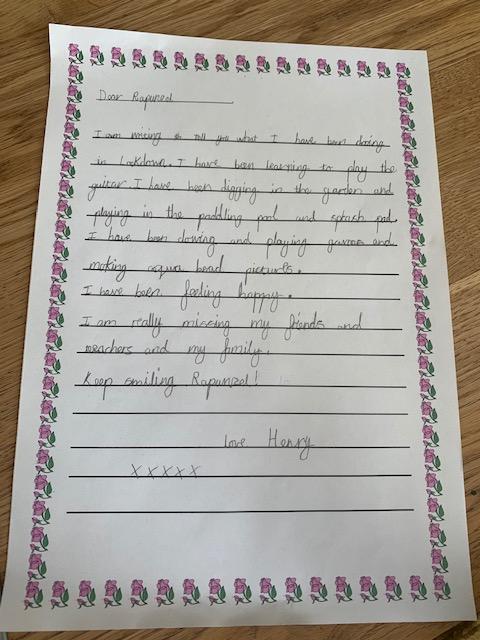 Dear Rapunzel
I am writing to tell you what I have been doing
in Lockdown. I have been learning to play the
guitar. I have been digging in the garden and
playing in the paddling pool and splash pad.
I have been drowing and playing games and
making aqua bead pictures.
I have been feeling happy.
I am really missing my friends and
teachers and my fimily.
Keep smiling Rapunzel!
love Henry
X X X X X